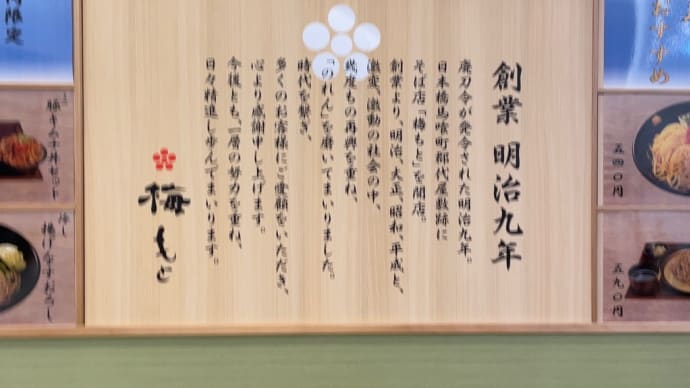 おすすめ
五四〇円
五九〇円
創業 明治九年
廃刀令が発令された明治九年。
日本橋馬喰町郡代屋敷跡に
そば店「梅もと」を開店。
創業より、明治、大正、昭和、平成と、
激変、激動の社会の中、
幾度もの再興を重ね、
「のれん」を磨いてまいりました。
時代を繋ぎ、
多くのお客様にご愛顧をいただき、
心より感謝申し上げます。
今後とも、一層の努力を重ね、
日々精進し歩んでまいります。
梅もと
限定
豚キムチ丼セット
冷し
揚げなすおろし